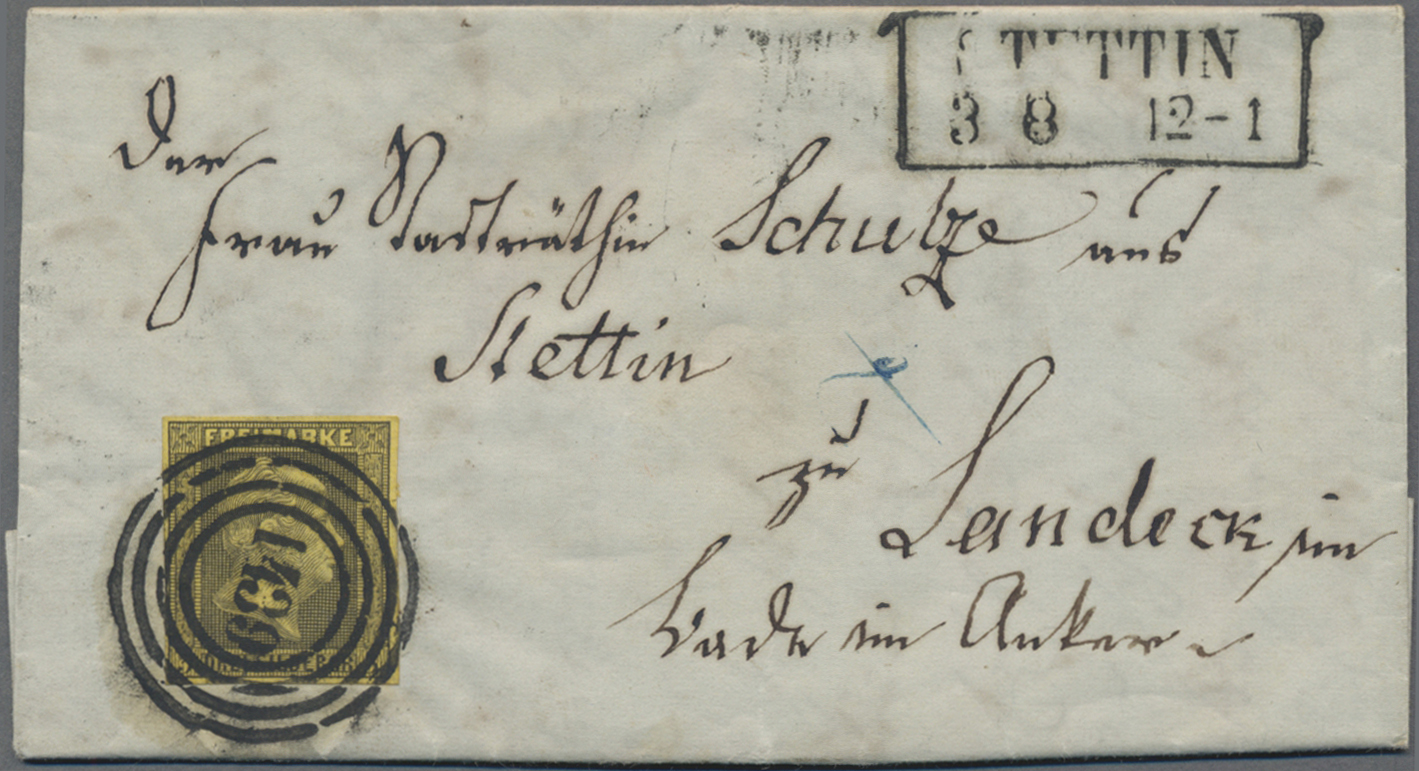 STETTIN
3 8 12-1
Der
Frau Stadträthin Schultze aus
Stettin
zu
Landeck im
Bade im Anker.
FREIMARKE